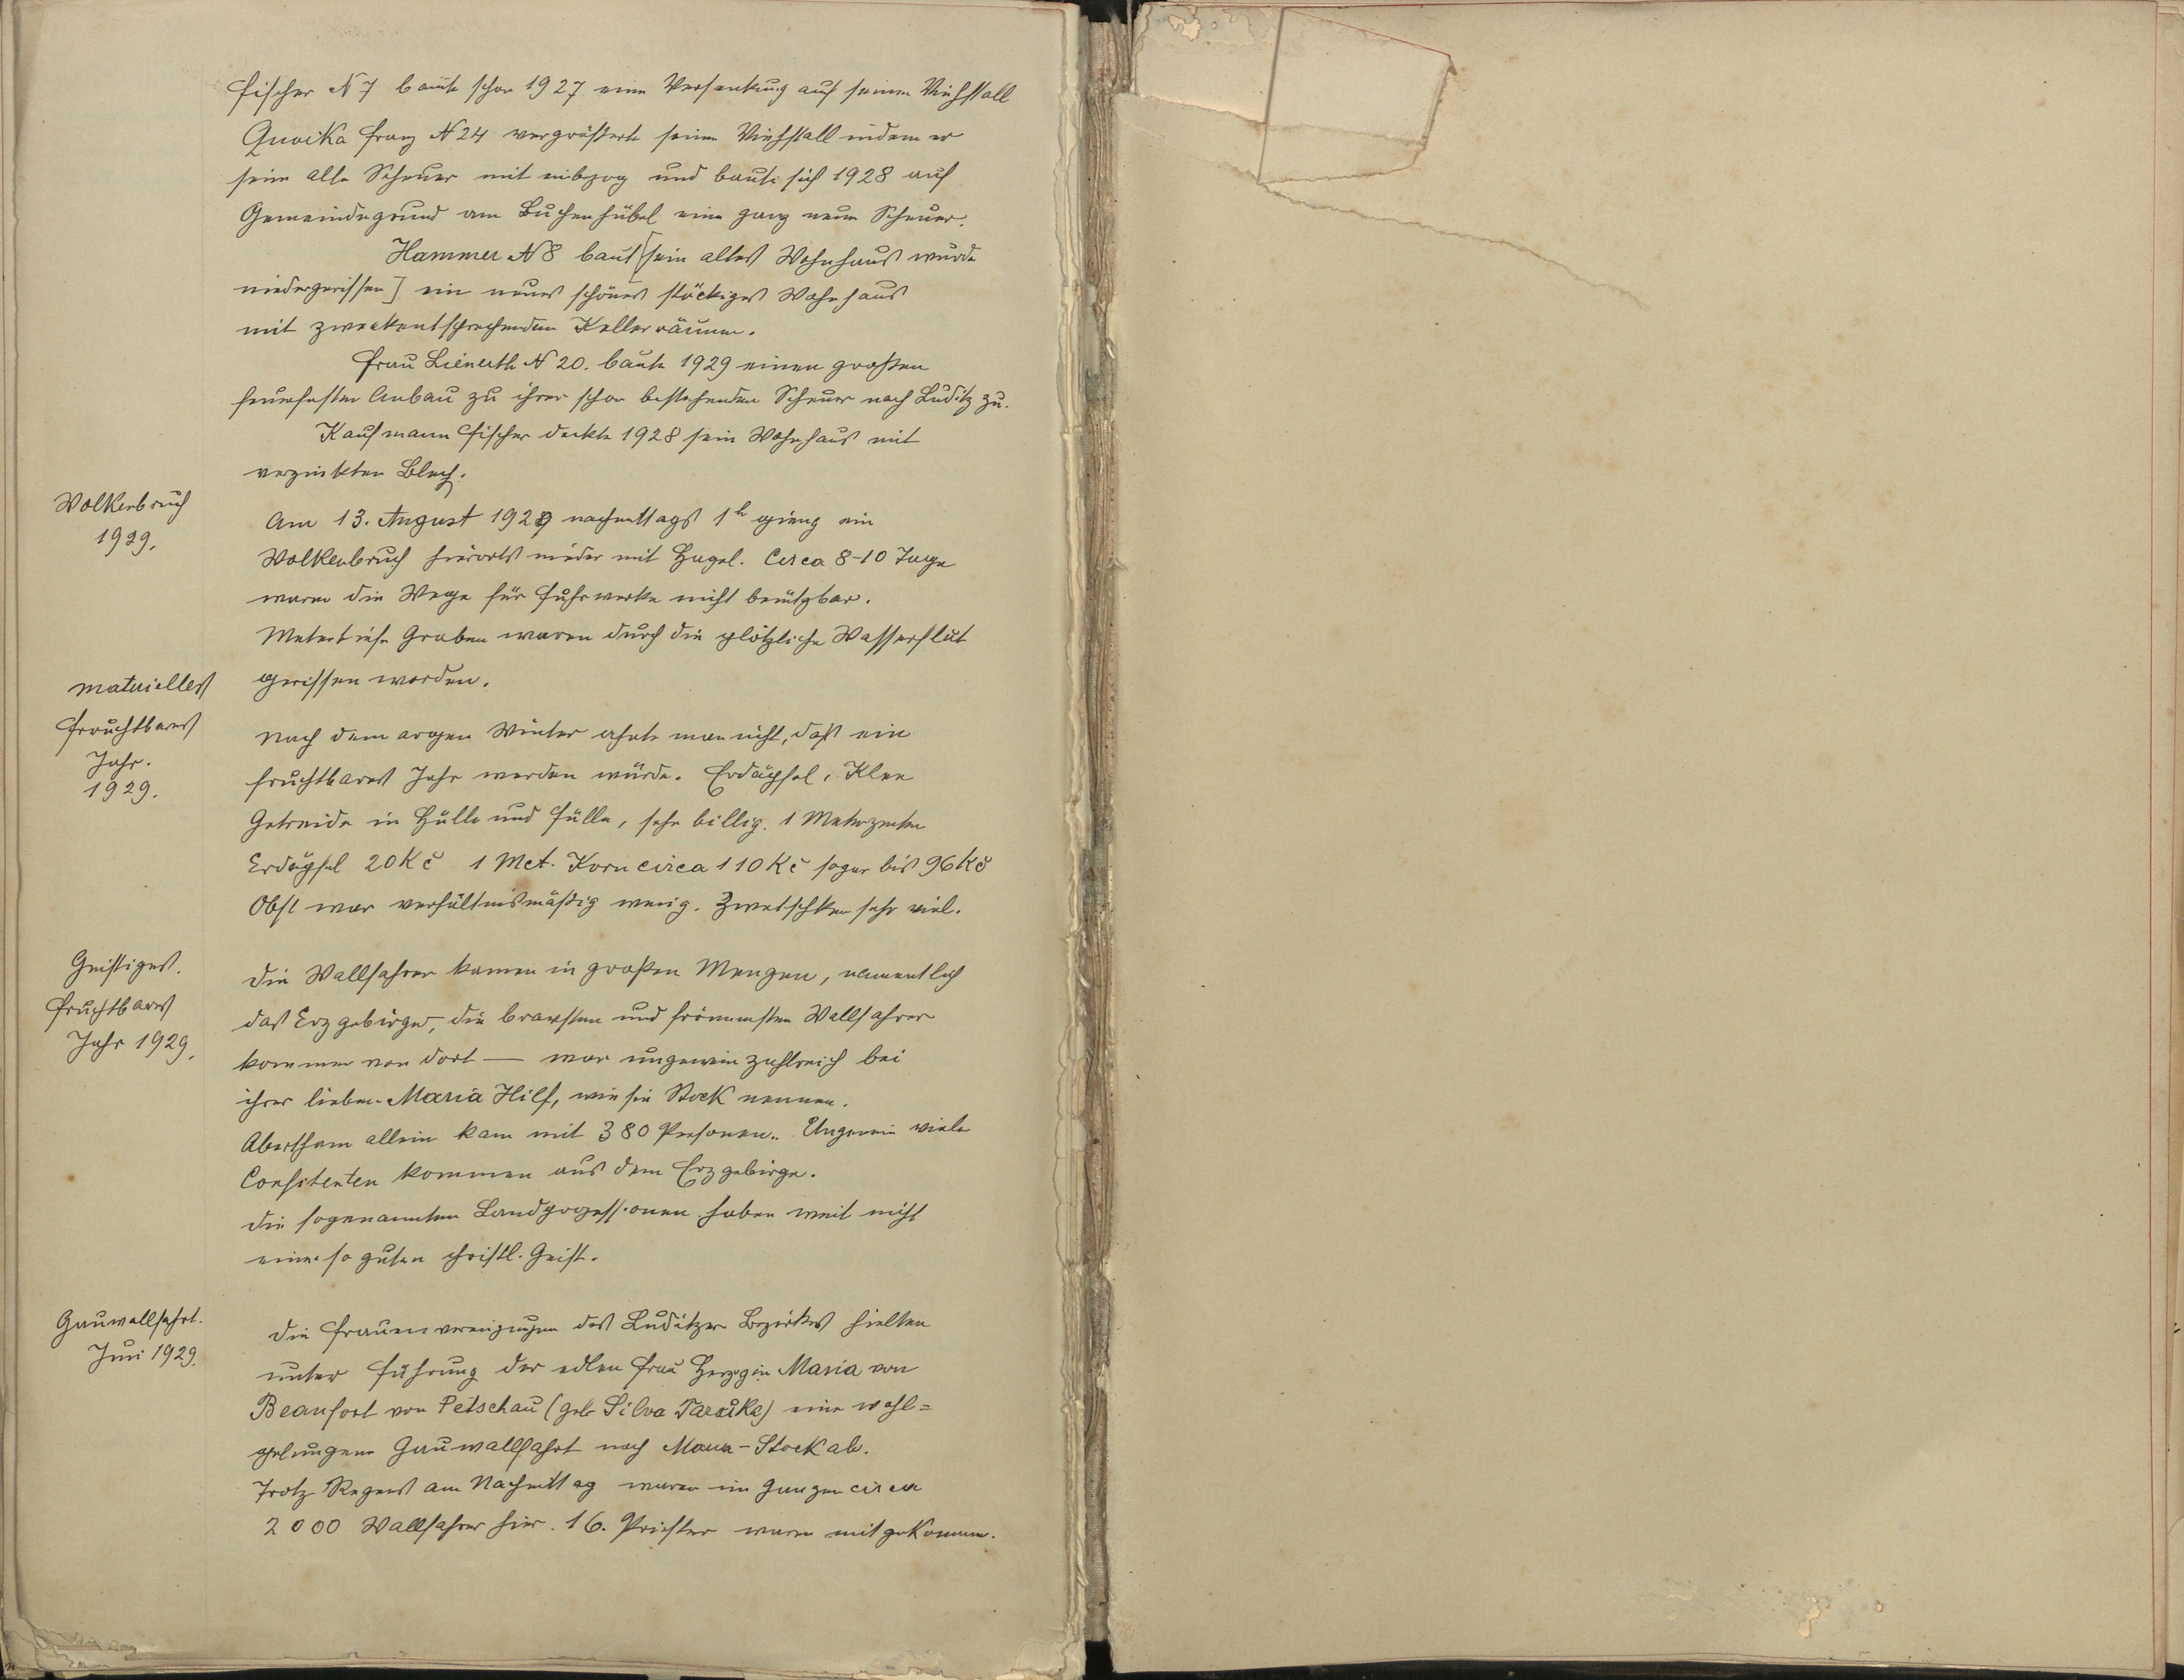 Fischer N 7 baute schon 1927 eine Versenkung auf seinen Viehstall
Quoika Franz N 24 vergrößerte seinen Viehstall indem er
seine alte Scheuer mit einbzog und baute sich 1928 auf
Gemeindegrund am Buchenhübel eine ganz neue Scheuer.
Hammer N 8 baut [sein altes Wohnhaus wurde
niedergerissen] ein neues schönes stöckiges Wohnhaus
mit zweckentsprechenden Kellerräumen.
Frau Lienerth N 20. baute 1929 einen großen
feuerfesten Anbau zu ihrer schon bestehenden Scheuer nach Luditz zu.
Kaufmann Fischer deckte 1928 sein Wohnhaus mit
verzinkten Blech.
Wolkenbruch
1929.
Am 13. August 1929 nachmittags 1h gieng ein
Wolkenbruch hierorts nieder mit Hagel. Circa 8-10 Tage
waren die Wege für Fuhrwerke nicht benützbar.
Metertiefe Graben waren durch die plötzliche Wasserflut
gerissen worden.
materielles
Fruchtbares
Jahr.
1929.
Nach dem argen Winter ahnte man nicht, daß ein
fruchtbares Jahr werden würde. Erdäpfel, Klee
Getreide in Hülle und Fülle, sehr billig. 1 Meterzenten
Erdäpfel 20 Kč 1 Met. Korn circa 110 Kč sogar bis 96 Kč
Obst war verhältnismäßig wenig. Zwetschken sehr viel.
Geistiges.
fruchtbares
Jahr 1929.
Die Wallfahrer kamen in großen Mengen, namentlich
das Erzgebirge, die bravsten und frömmsten Wallfahrer
kommen von dort — war ungemein zahlreich bei
ihrer lieben Maria Hilf, wie sie Stock nennen.
Abertham allein kam mit 380 Personen. Ungemein viele
Confitenten kommen aus dem Erzgebirge.
Die sogenannten Landprozessionen haben weit nicht
einen so guten christl. Geist.
Gauwallfahrt.
Juni 1929.
Die Frauenvereinigungen des Luditzer Bezirkes hielten
unter Führung der edlen Frau Herzogin Maria von
Beaufort von Petschau (geb Silva Tarouka) eine wohl=
gelungene Gauwallfahrt nach Maria-Stock ab.
Trotz Regens am Nachmittag waren im Ganzen circa
2000 Wallfahrer hier. 16. Priester waren mitgekommen.